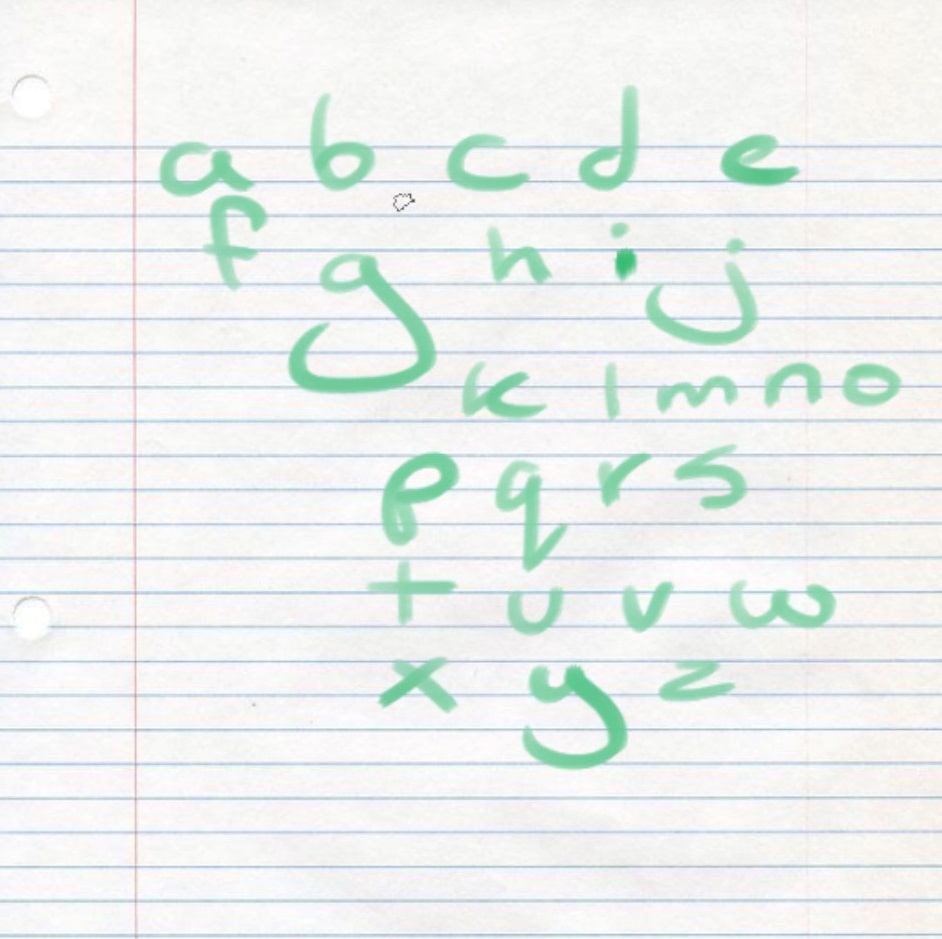 a b c d e
f g h i j
k l m n o
p q r s
t u v w
x y z